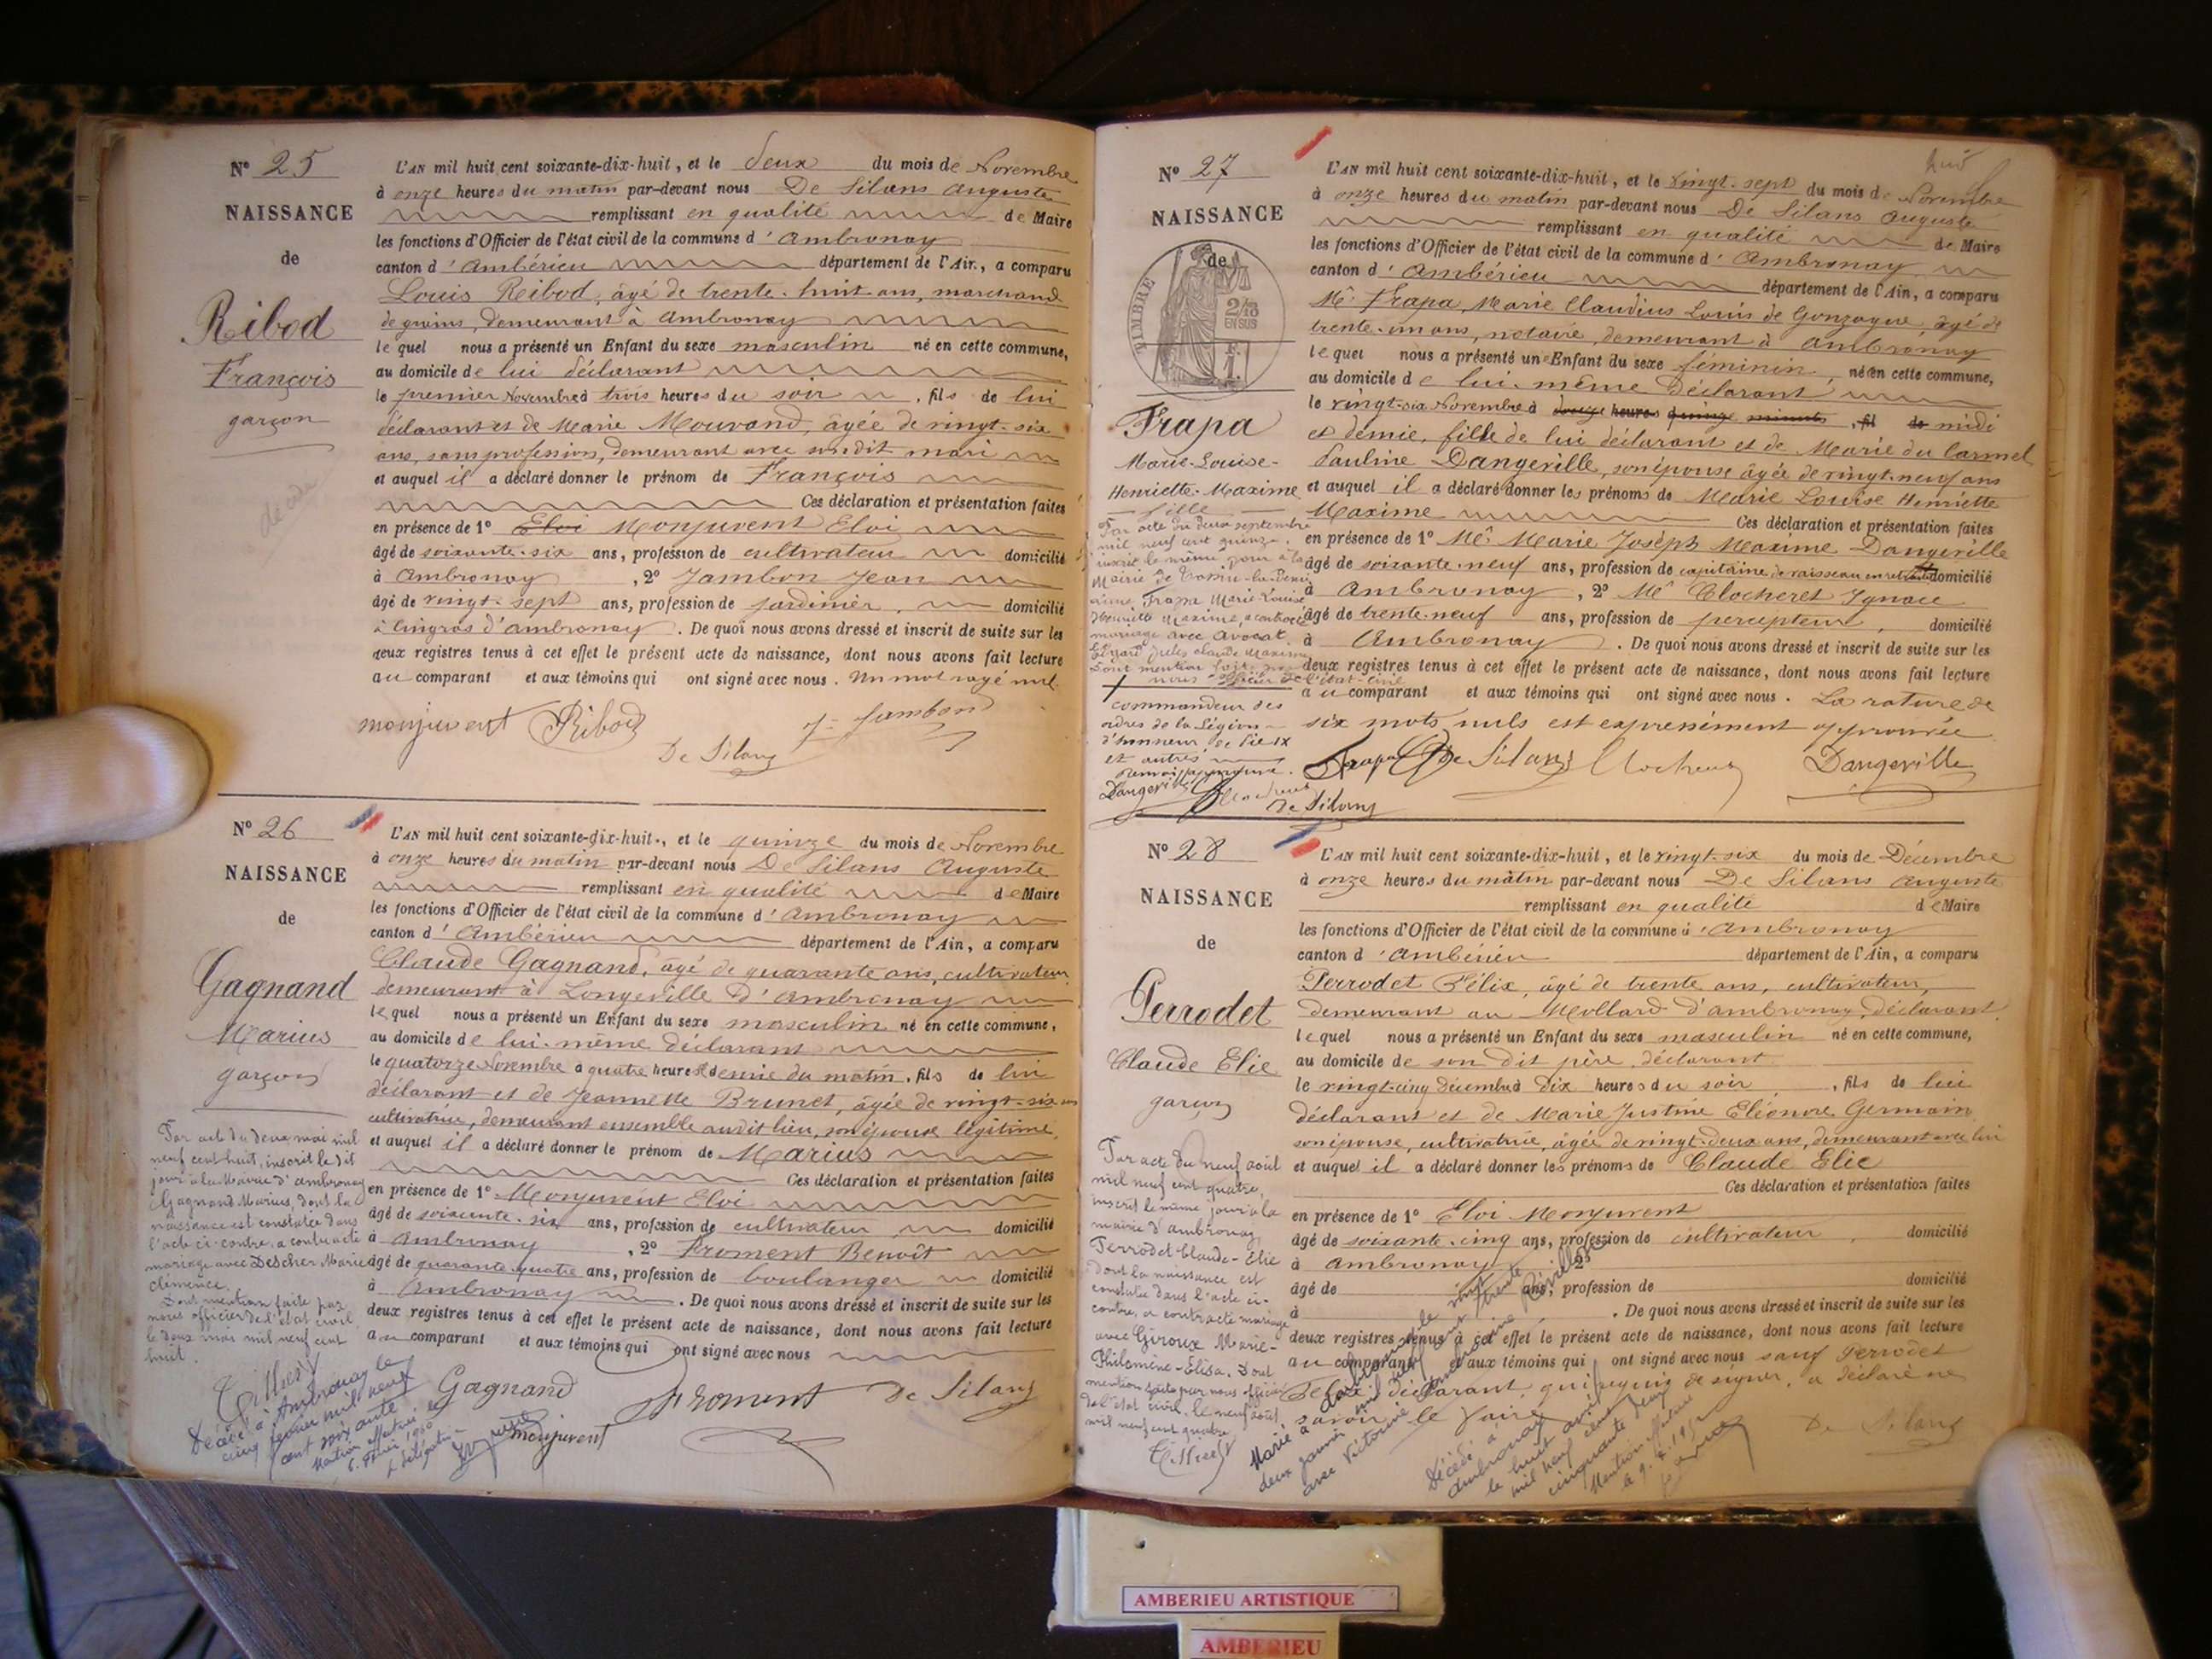 N° 25
NAISSANCE
de
Ribod
François
garçon
L'AN mil huit cent soixante-dix-huit, et le deux du mois de Novembre
à onze heures du matin par-devant nous De Silans Auguste
remplissant en qualité de Maire
les fonctions d'Officier de l'état civil de la commune d'Ambronay
canton d'Ambérieu département de l'Ain, a comparu
Louis Ribod, âgé de trente-huit ans, marchand
de grains, demeurant à Ambronay
lequel nous a présenté un Enfant du sexe masculin né en cette commune,
au domicile de lui déclarant
le premier Novembre à trois heures du soir, fils de lui
déclarant et de Marie Mouvand, âgée de vingt-six
ans, sans profession, demeurant avec son dit mari
et auquel il a déclaré donner le prénom de François
Ces déclaration et présentation faites
en présence de 1° Eloi Monjuvent Eloi
âgé de soixante-six ans, profession de cultivateur domicilié
à Ambronay, 2° Jambon Jean
âgé de vingt-sept ans, profession de jardinier, domicilié
d'Ambronay. De quoi nous avons dressé et inscrit de suite sur les
deux registres tenus à cet effet le présent acte de naissance, dont nous avons fait lecture
au comparant et aux témoins qui ont signé avec nous. Un mot rayé nul.
monjuvent Ribod De Silans J. Jambon
N° 26
NAISSANCE
de
Gagnand
Marius
garçon
Par acte du deux mai mil
neuf cent huit, inscrit le dit
jour à la Mairie d'Ambronay
Gagnand Marius, dont la
naissance est constatée dans
l'acte ci-contre, a contracté
mariage avec Descher Marie
Clémence.
Dont mention faite par
nous officier de l'état civil
le deux mai mil neuf cent
huit.
Décédé à Ambronay le
cinq février mil neuf
cent soixante
L'AN mil huit cent soixante-dix-huit, et le quinze du mois de Novembre
à onze heures du matin par-devant nous De Silans Auguste
remplissant en qualité de Maire
les fonctions d'Officier de l'état civil de la commune d'Ambronay
canton d'Ambérieu département de l'Ain, a comparu
Claude Gagnand, âgé de quarante ans, cultivateur
demeurant à Longeville d'Ambronay
lequel nous a présenté un Enfant du sexe masculin né en cette commune,
au domicile de lui-même déclarant
le quatorze Novembre à quatre heures et demie du matin, fils de lui
déclarant et de Jeannette Brunet, âgée de vingt-six ans
cultivatrice, demeurant ensemble audit lieu, son épouse légitime,
et auquel il a déclaré donner le prénom de Marius
Ces déclaration et présentation faites
en présence de 1° Monjuvent Eloi
âgé de soixante-six ans, profession de cultivateur domicilié
à Ambronay, 2° Froment Benoît
âgé de quarante-quatre ans, profession de boulanger domicilié
à Ambronay. De quoi nous avons dressé et inscrit de suite sur les
deux registres tenus à cet effet le présent acte de naissance, dont nous avons fait lecture
au comparant et aux témoins qui ont signé avec nous
Gagnand Froment De Silans
monjuvent
N° 27
NAISSANCE
de
TIMBRE
2/10
EN SUS
Frapa
Marie-Louise-
Henriette-Maxime
fille
Par acte du deux septembre
mil neuf cent quinze,
inscrit le même jour à la
Frapa Marie Louise
Henriette Maxime, a contracté
mariage avec
Jules Claude Maxime
Dont mention faite par
nous officier de l'état-civil
commandeur des
ordres de la Légion
d'honneur, de Pie IX
et autres
Dangeville
De Silans
L'AN mil huit cent soixante-dix-huit, et le vingt-sept du mois de Novembre
à onze heures du matin par-devant nous De Silans Auguste
remplissant en qualité de Maire
les fonctions d'Officier de l'état civil de la commune d'Ambronay
canton d'Ambérieu département de l'Ain, a comparu
Me Frapa, Marie Claudius Louis de Gonzague, âgé de
trente-un ans, notaire, demeurant à Ambronay
lequel nous a présenté un Enfant du sexe féminin, né en cette commune,
au domicile de lui-même déclarant
le vingt-six Novembre à douze heures quinze minutes, fil de midi
et demie, fille de lui déclarant et de Marie du Carmel
Pauline Dangeville, son épouse âgée de vingt-neuf ans
et auquel il a déclaré donner les prénoms de Marie Louise Henriette
Maxime Ces déclaration et présentation faites
en présence de 1° Mr Marie Joseph Maxime Dangeville
âgé de soixante-neuf ans, profession de capitaine de vaisseau en retraite domicilié
à Ambronay, 2° Mr Clocheret Ignace
âgé de trente-neuf ans, profession de percepteur, domicilié
à Ambronay. De quoi nous avons dressé et inscrit de suite sur les
deux registres tenus à cet effet le présent acte de naissance, dont nous avons fait lecture
au comparant et aux témoins qui ont signé avec nous. La rature de
six mots nuls est expressément approuvée
Frapa De Silans Clocheret Dangeville
N° 28
NAISSANCE
de
Perrodet
Claude Elie
garçon
Par acte du neuf août
mil neuf cent quatre,
inscrit le même jour à la
mairie d'Ambronay
Perrodet Claude-Elie
dont la naissance est
constatée dans l'acte ci-
contre, a contracté mariage
avec Giroux Marie-
Philomène-Elisa. Dont
mention faite par nous officier
de l'état civil, le neuf août
mil neuf cent quatre
L'AN mil huit cent soixante-dix-huit, et le vingt-six du mois de Décembre
à onze heures du matin par-devant nous De Silans Auguste
remplissant en qualité de Maire
les fonctions d'Officier de l'état civil de la commune d'Ambronay
canton d'Ambérieu département de l'Ain, a comparu
Perrodet Félix, âgé de trente ans, cultivateur,
demeurant au Mollard d'Ambronay, déclarant
lequel nous a présenté un Enfant du sexe masculin né en cette commune,
au domicile de son dit père déclarant
le vingt-cinq décembre à dix heures du soir, fils de lui
déclarant et de Marie Justine Eléonore Germain
son épouse, cultivatrice, âgée de vingt-deux ans, demeurant avec lui
et auquel il a déclaré donner les prénoms de Claude Elie
Ces déclaration et présentation faites
en présence de 1° Eloi Monjuvent
âgé de soixante-cinq ans, profession de cultivateur, domicilié
à Ambronay, 2°
âgé de ans, profession de domicilié
à . De quoi nous avons dressé et inscrit de suite sur les
deux registres tenus à cet effet le présent acte de naissance, dont nous avons fait lecture
au comparant et aux témoins qui ont signé avec nous sauf Perrodet
Félix, déclarant, qui requis de signer, a déclaré ne
savoir le faire
De Silans
Marié à Ambronay le vingt
deux janvier mil neuf cent trente
avec Victorine
Décédé à
Ambronay
le huit avril
mil neuf cent
cinquante deux
AMBERIEU ARTISTIQUE
AMBERIEU